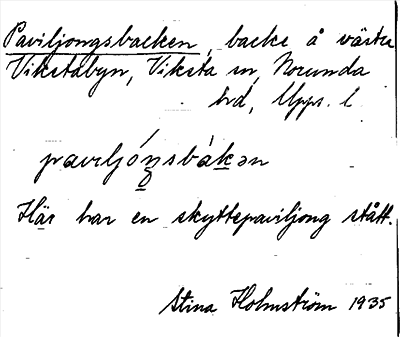 Paviljongsbacken, backe å västra
Vikstabyn, Viksta sn, Norunda
hd, Upps. l.
paviljóŋsbákən
Här har en skyttepaviljong stått.
Stina Holmström 1935